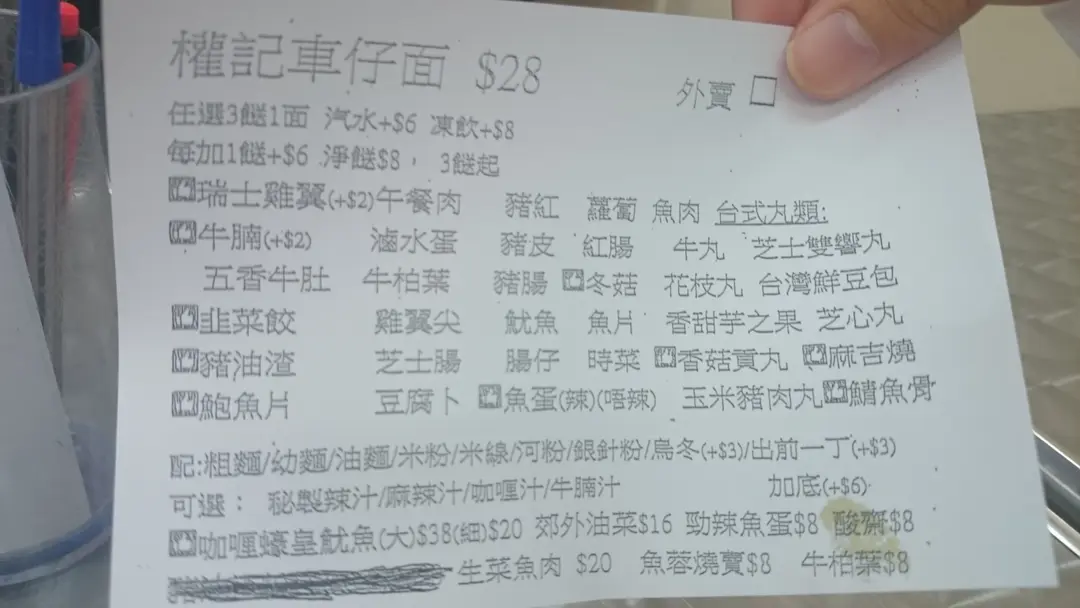 權記車仔面 $28
外賣 □
任選3餸1面 汽水+$6 凍飲+$8
每加1餸+$6 淨餸$8， 3餸起
瑞士雞翼(+$2) 午餐肉 豬紅 蘿蔔 魚肉 台式丸類:
牛腩(+$2) 滷水蛋 豬皮 紅腸 牛丸 芝士雙響丸
五香牛肚 牛柏葉 豬腸 冬菇 花枝丸 台灣鮮豆包
韭菜餃 雞翼尖 魷魚 魚片 香甜芋之果 芝心丸
豬油渣 芝士腸 腸仔 時菜 香菇貢丸 麻吉燒
鮑魚片 豆腐卜 魚蛋(辣)(唔辣) 玉米豬肉丸 鯖魚骨
配:粗麵/幼麵/油麵/米粉/米線/河粉/銀針粉/烏冬(+$3)/出前一丁(+$3)
可選： 秘製辣汁/麻辣汁/咖喱汁/牛腩汁 加底(+$6)
咖喱蠔皇魷魚(大)$38(細)$20 郊外油菜$16 勁辣魚蛋$8 酸齋$8
生菜魚肉 $20 魚蓉燒賣$8 牛柏葉$8